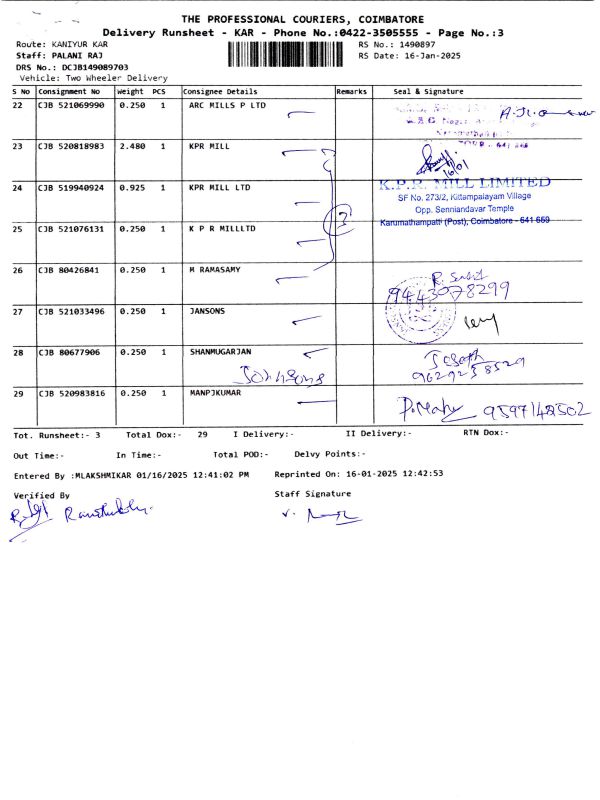 THE PROFESSIONAL COURIERS, COIMBATORE
Delivery Runsheet - KAR - Phone No.:0422-3505555 - Page No.:3
Route: KANIYUR KAR RS No.: 1490897
Staff: PALANI RAJ RS Date: 16-Jan-2025
DRS No.: DCJB149089703
Vehicle: Two Wheeler Delivery
S No Consignment No Weight PCS Consignee Details Remarks Seal & Signature
22 CJB 521069990 0.250 1 ARC MILLS P LTD
23 CJB 520818983 2.480 1 KPR MILL
16/01
24 CJB 519940924 0.925 1 KPR MILL LTD K.P.R. MILL LIMITED
SF No. 273/2, Kittampalayam Village
Opp. Senniandavar Temple
3
25 CJB 521076131 0.250 1 K P R MILLLTD Karumathampatti (Post), Coimbatore - 641 659
26 CJB 80426841 0.250 1 M RAMASAMY
9443078299
27 CJB 521033496 0.250 1 JANSONS
28 CJB 80677906 0.250 1 SHANMUGARJAN
9629258529
29 CJB 520983816 0.250 1 MANPJKUMAR
9597148502
Tot. Runsheet:- 3 Total Dox:- 29 I Delivery:- II Delivery:- RTN Dox:-
Out Time:- In Time:- Total POD:- Delvy Points:-
Entered By :MLAKSHMIKAR 01/16/2025 12:41:02 PM Reprinted On: 16-01-2025 12:42:53
Verified By Staff Signature